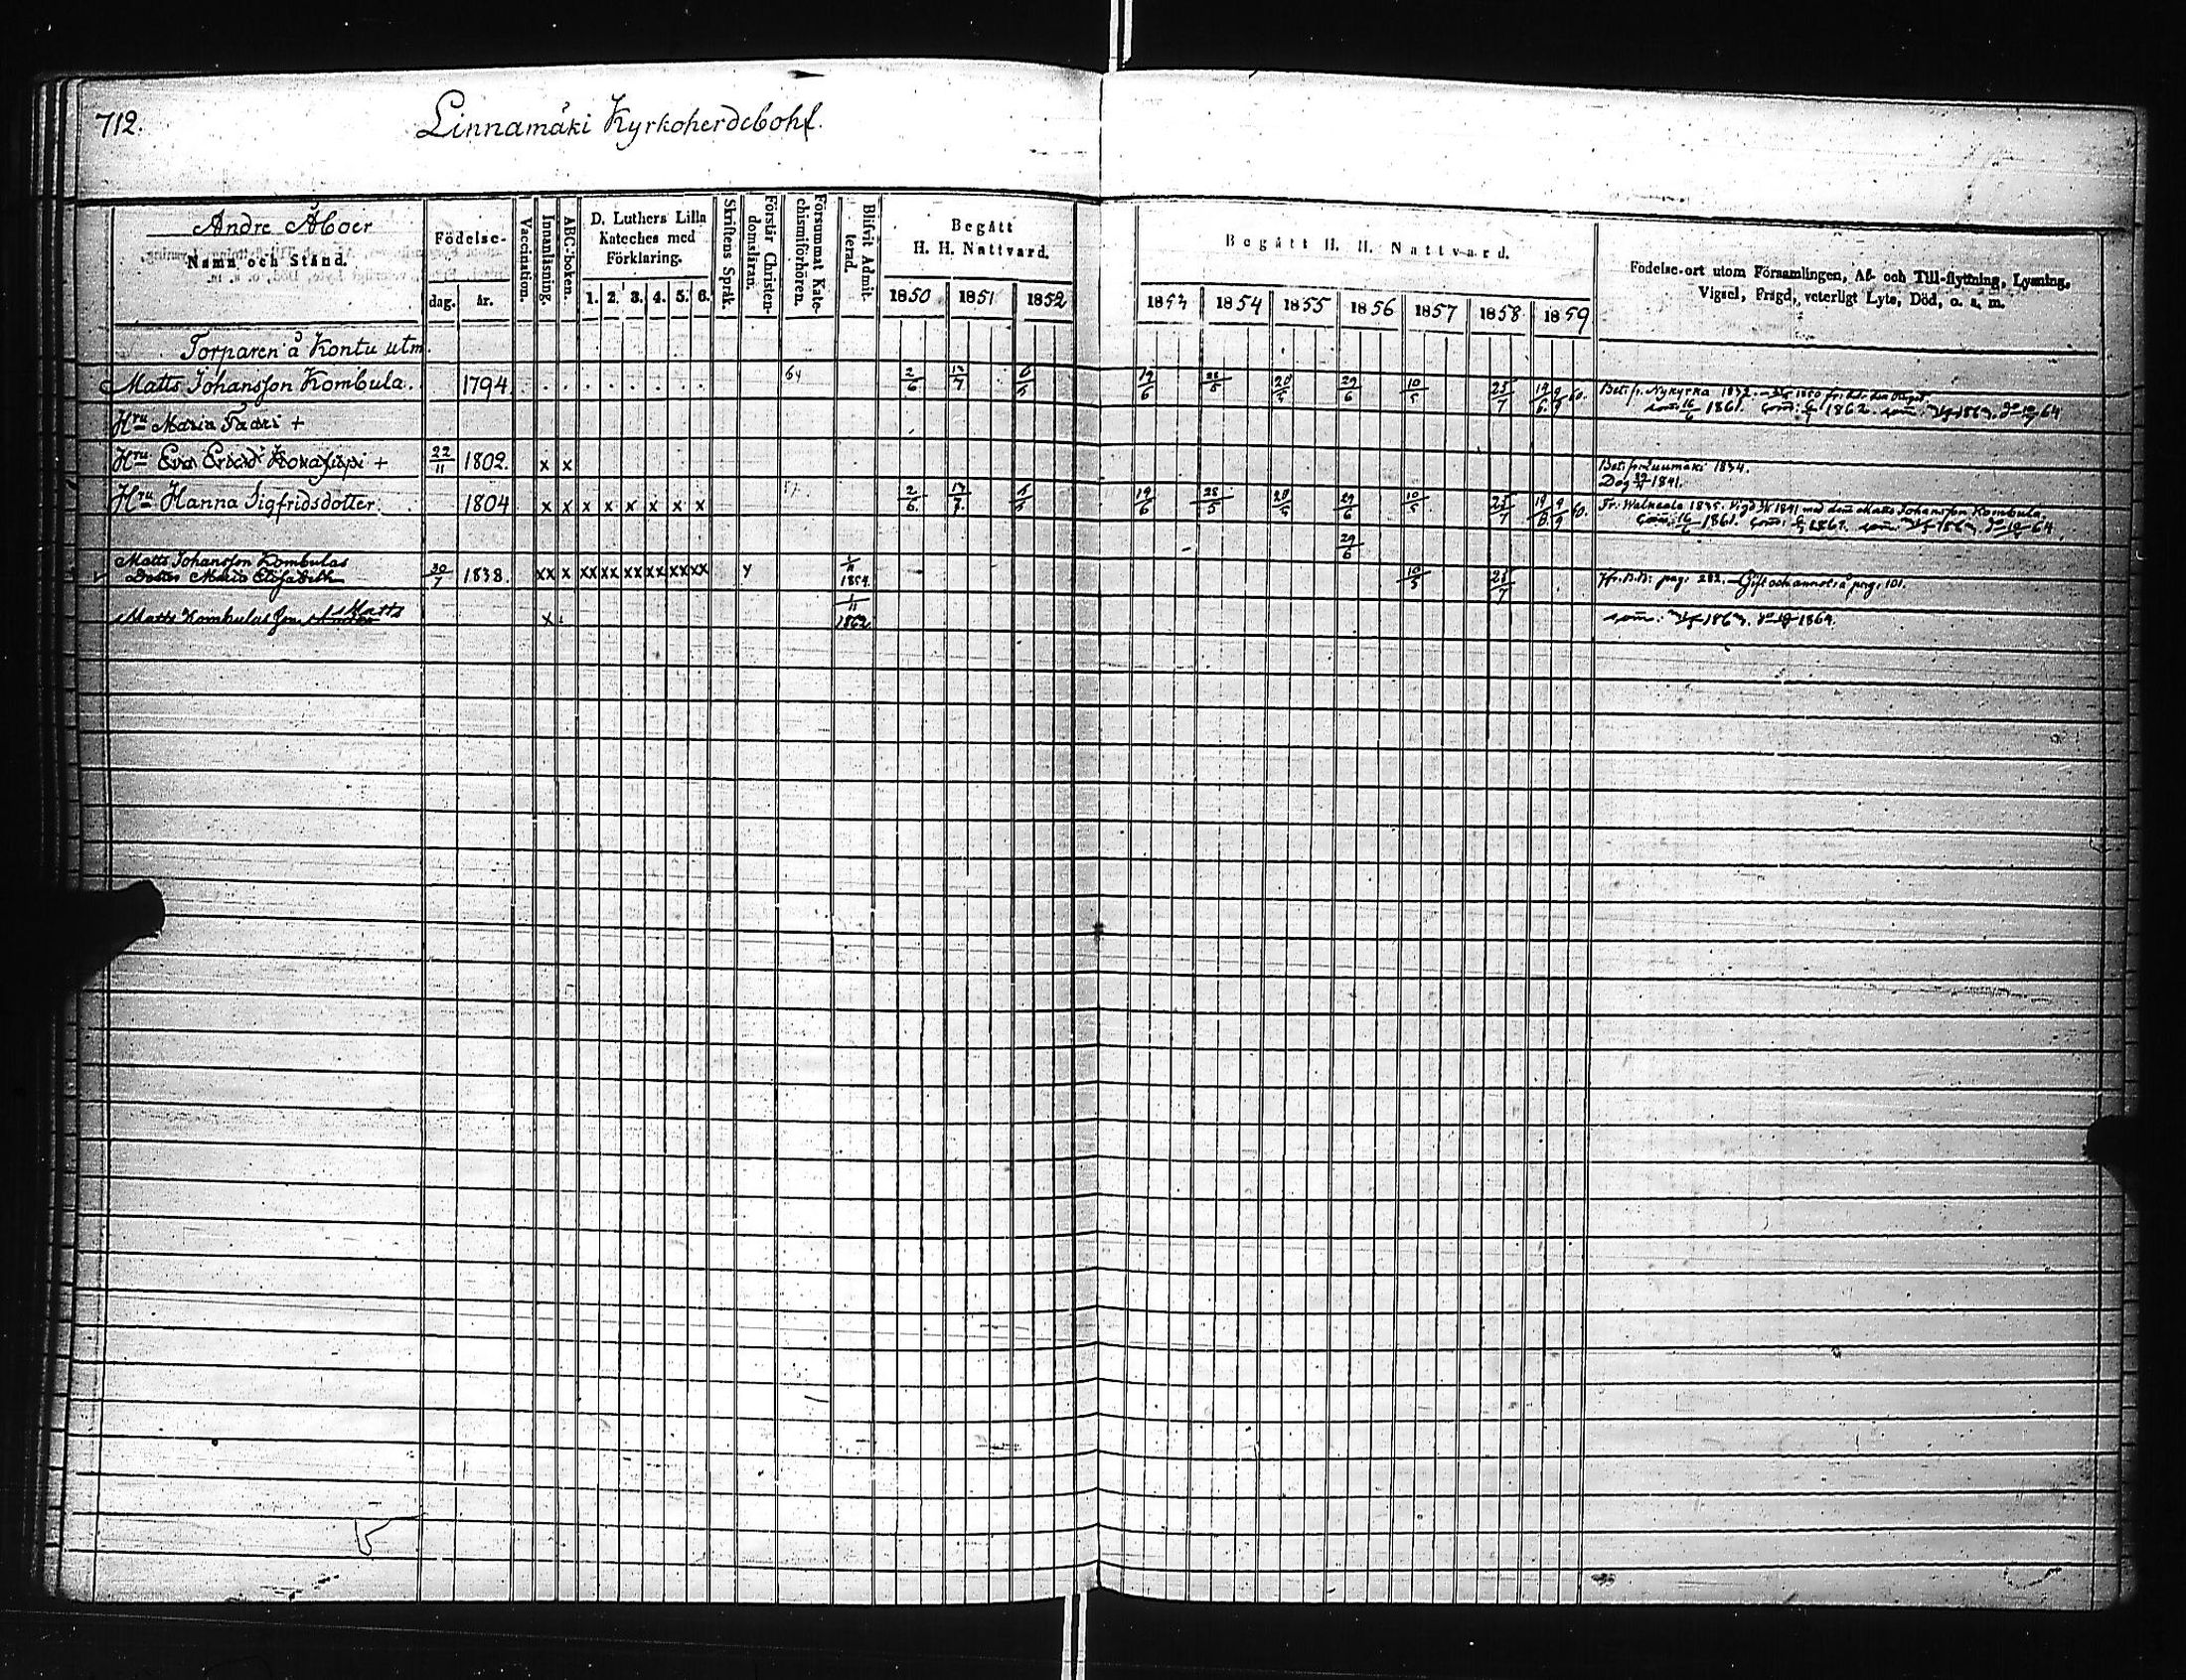 712.
Linnamäki Kyrkoherdeboht.
Andre Åboer
Namn och Stånd.
Födelse-
dag. år.
Vaccination.
Innanläsning.
ABC-boken.
D. Luthers Lilla
Kateches med
Förklaring.
1. 2. 3. 4. 5. 6.
Skriftens Språk.
Förstår Christen-
domsläran.
Försummat Kate-
chismiförhören.
Blifvit Admit-
terad.
Begått
H. H. Nattvard.
1850 1851 1852
Begått H. H. Nattvard.
1853 1854 1855 1856 1857 1858 1859
Födelse-ort utom Församlingen, Af- och Till-flyttning, Lysning,
Vigsel, Frägd, veterligt Lyte, Död, o. s. m.
Torparen å Kontu utm.
Matts Johansson Kombula. 1794 64 2/6 13/7 6/5 19/6 28/5 20/5 29/6 10/5 25/7 19/6 9/9 60. Bet. fr. Nykyrka 1832.
16/6 1861. 1862. 1863. 64
Hru Maria +
Hru Eva + 22/11 1802. x x Bet. fr. Luumäki 1834.
Dog 1841.
Hru Hanna Sigfridsdotter. 1804 x x x x x x x x 2/6 13/7 6/5 19/6 28/5 20/5 29/6 10/5 25/7 19/6 9/9 60. Fr. Walkeala 1835. Vigd 1841 med Matts Johansson Kombula.
16/6 1861. 1862. 1863. 64
29/6
Matts Johansson Kombulas
Dotter Maria Elisabeth 30/7 1838. xx x xx xx xx xx xx xx y 1854 10/5 25/7 pag. 282. Gift och annot. å pag. 101.
Matts Kombulas Son Matts x 1/11 1862 1863. 1864.